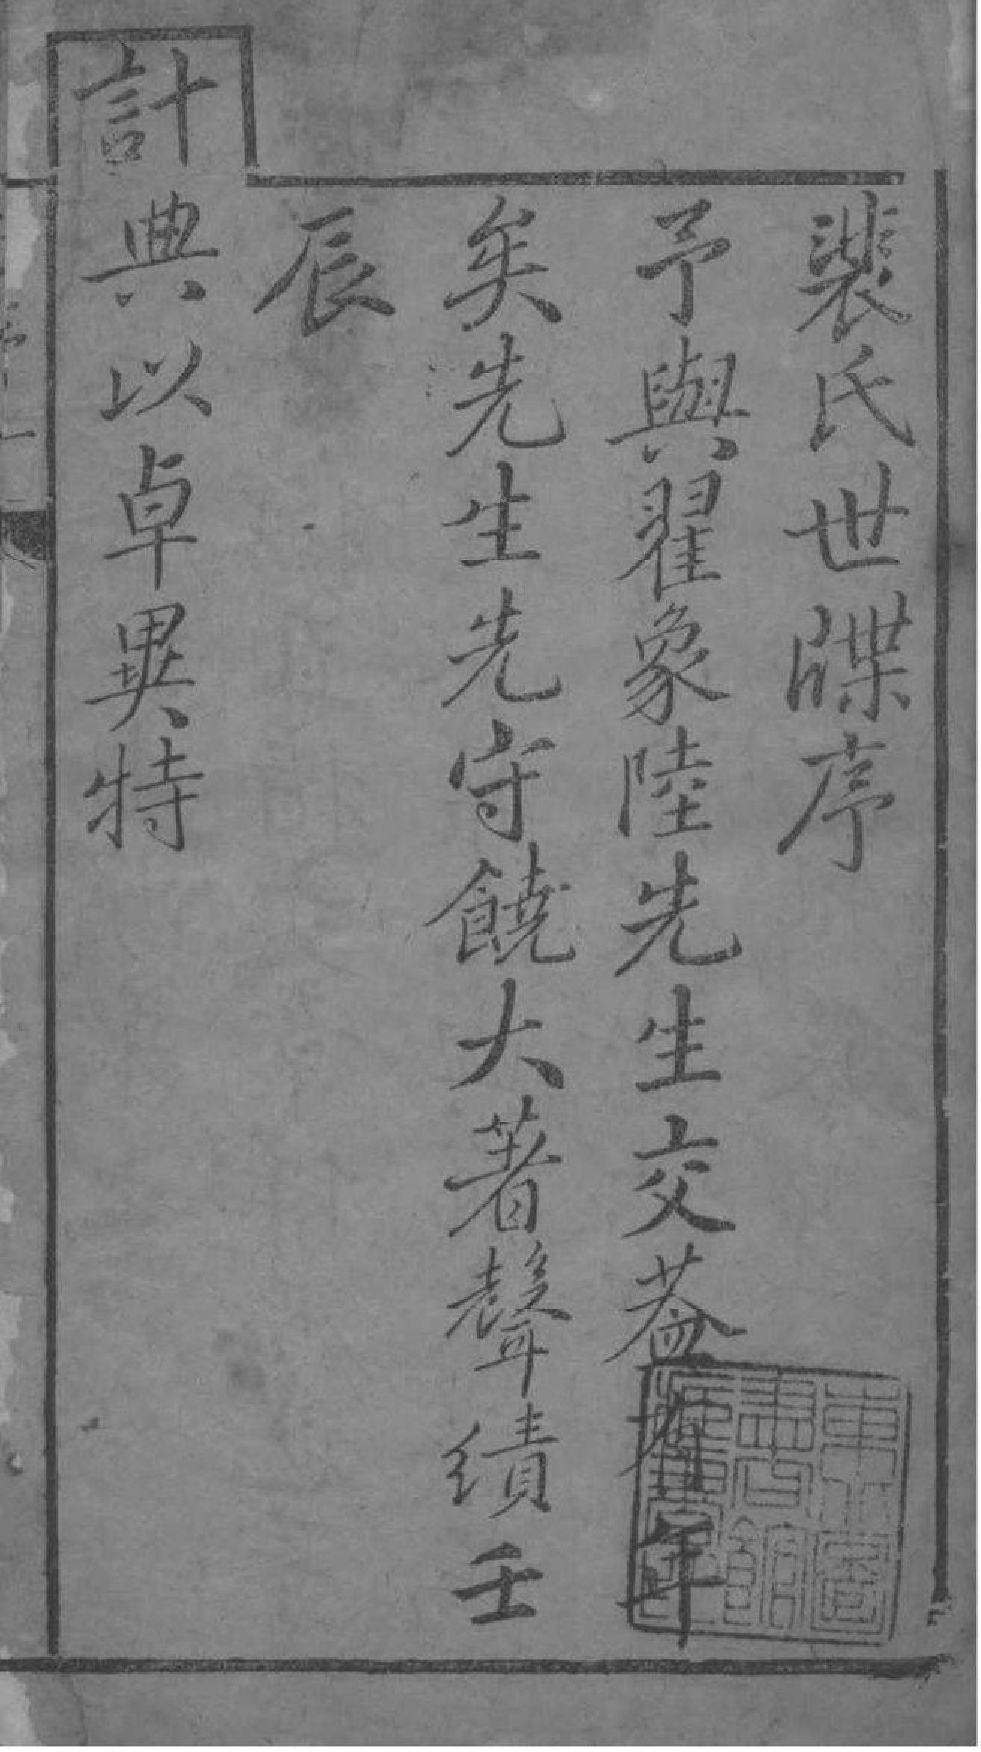 裴氏世牒序
予與翟象陸先生交葢有年
矣先生先守饒大著聲績壬
辰
計典以卓異特